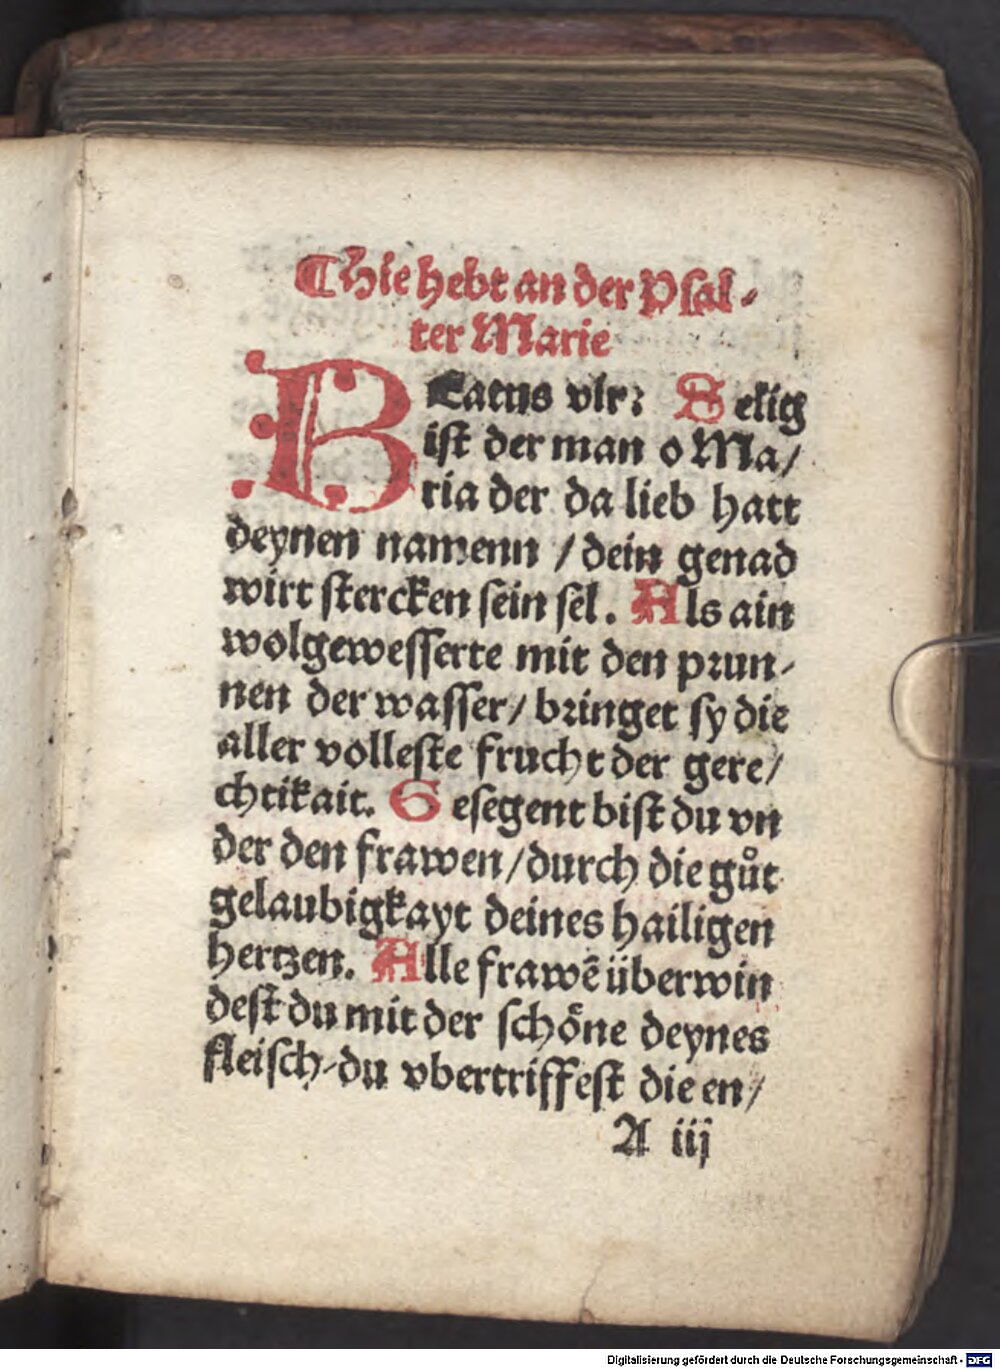 ¶ Hie hebt an der Psal-
ter Marie
BEatus vir: Selig
ist der man o Ma/
ria der da lieb hatt
deynen namenn / dein genad
wirt stercken sein sel. Als ain
wolgewesserte mit den prun-
nen der wasser / bringet sy die
aller volleste frucht der gere/
chtikait. Gesegent bist du vn
der den frawen / durch die gůt
gelaubigkayt deines hailigen
hertzen. Alle frawē überwin
dest du mit der schöne deynes
fleisch-du vbertriffest die en/
A iij
Digitalisierung gefördert durch die Deutsche Forschungsgemeinschaft - DFG